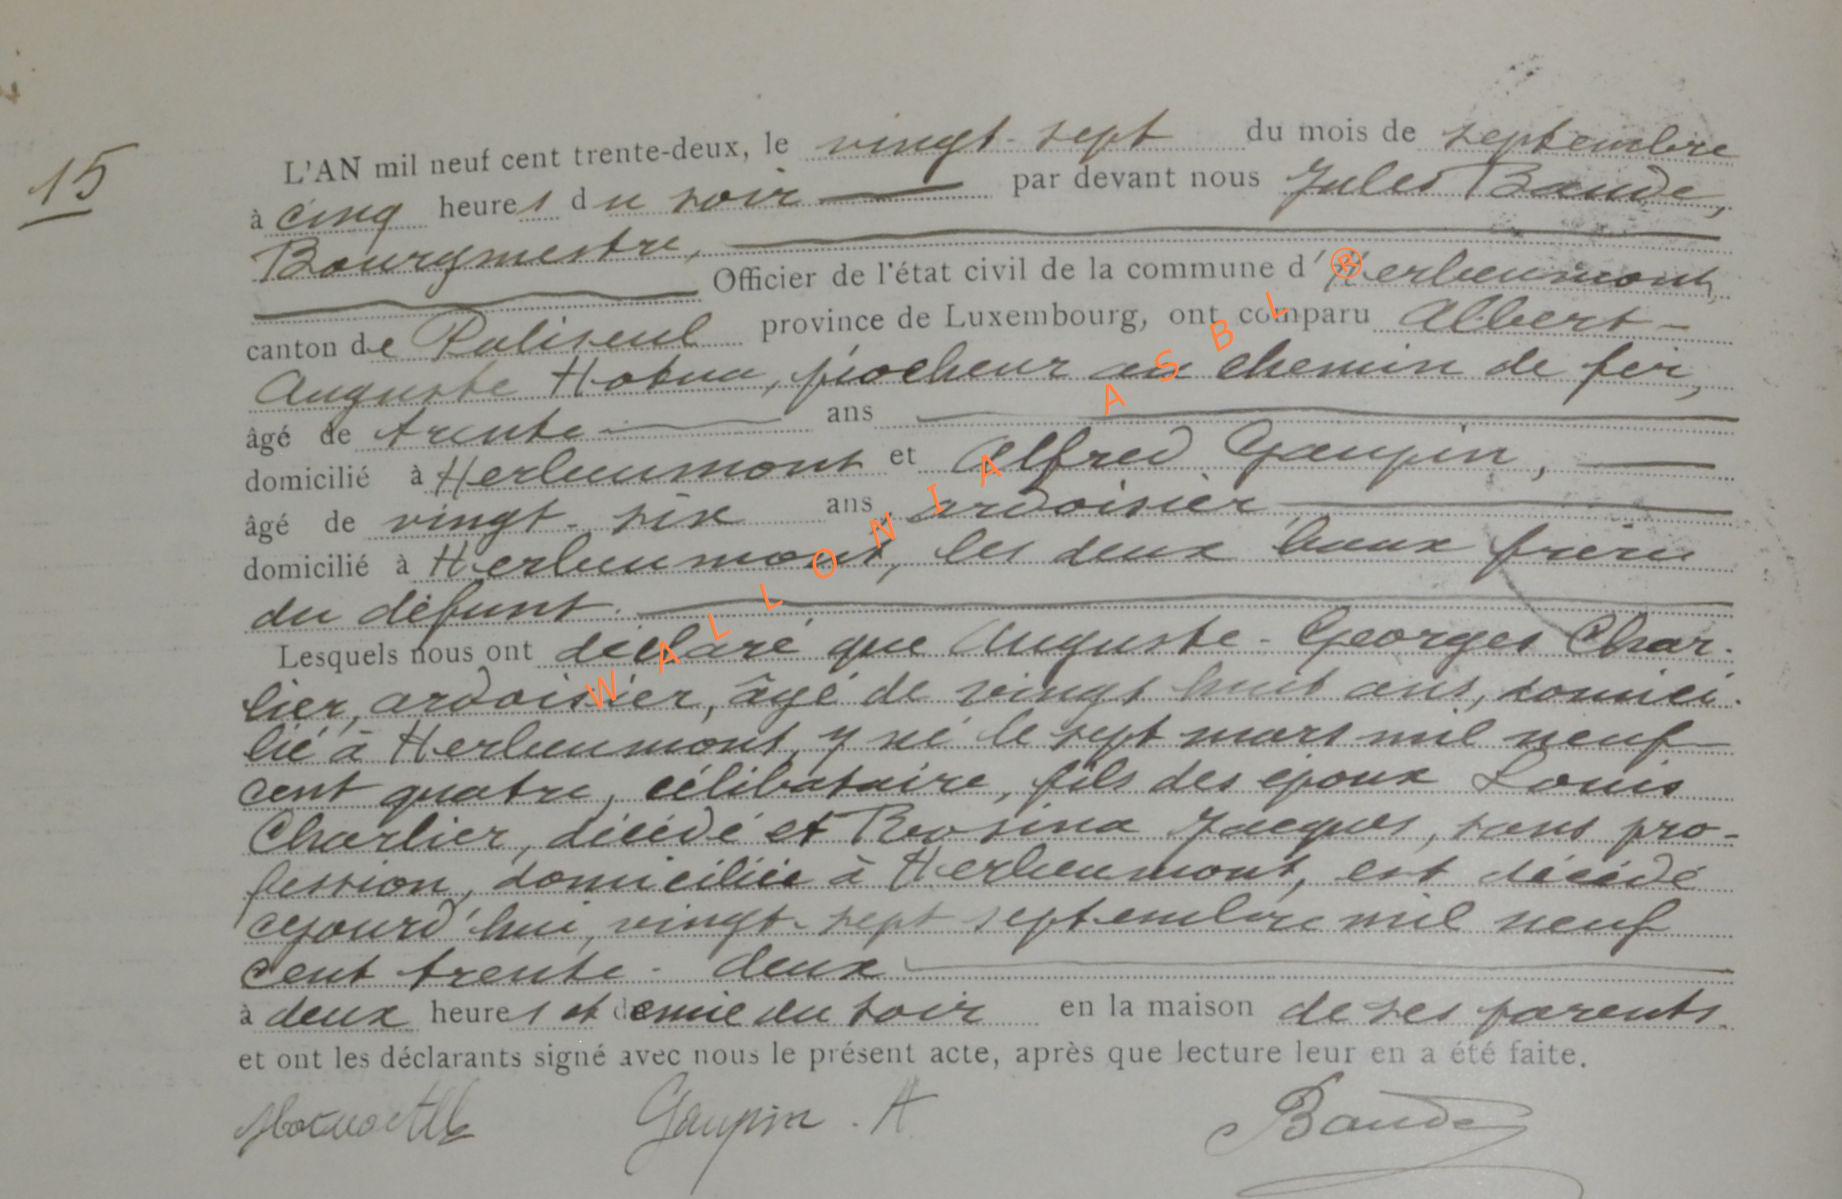 15
L'AN mil neuf cent trente-deux, le vingt-sept du mois de septembre
à cinq heures du soir par devant nous Jules Baude,
Bourgmestre,
Officier de l'état civil de la commune d'Herbeumont,
canton de Paliseul province de Luxembourg, ont comparu Albert-
Auguste piocheur au chemin de fer,
âgé de trente ans
domicilié à Herbeumont et Alfred Gaupin,
âgé de vingt-six ans, ardoisier
domicilié à Herbeumont, les deux beaux frères
du défunt.
Lesquels nous ont déclaré que Auguste-Georges Char-
lier, ardoisier, âgé de vingt huit ans, domici-
lié à Herbeumont, y né le sept mars mil neuf
cent quatre, célibataire, fils des époux Louis
Charlier, décédé et Rosina Jacques, sans pro-
fession, domiciliée à Herbeumont, est décédé
cejourd'hui, vingt-sept septembre mil neuf
cent trente-deux
à deux heures et demie du soir en la maison de ses parents.
et ont les déclarants signé avec nous le présent acte, après que lecture leur en a été faite.
Gaupin. A Baude
WALLONIA ASBL ®